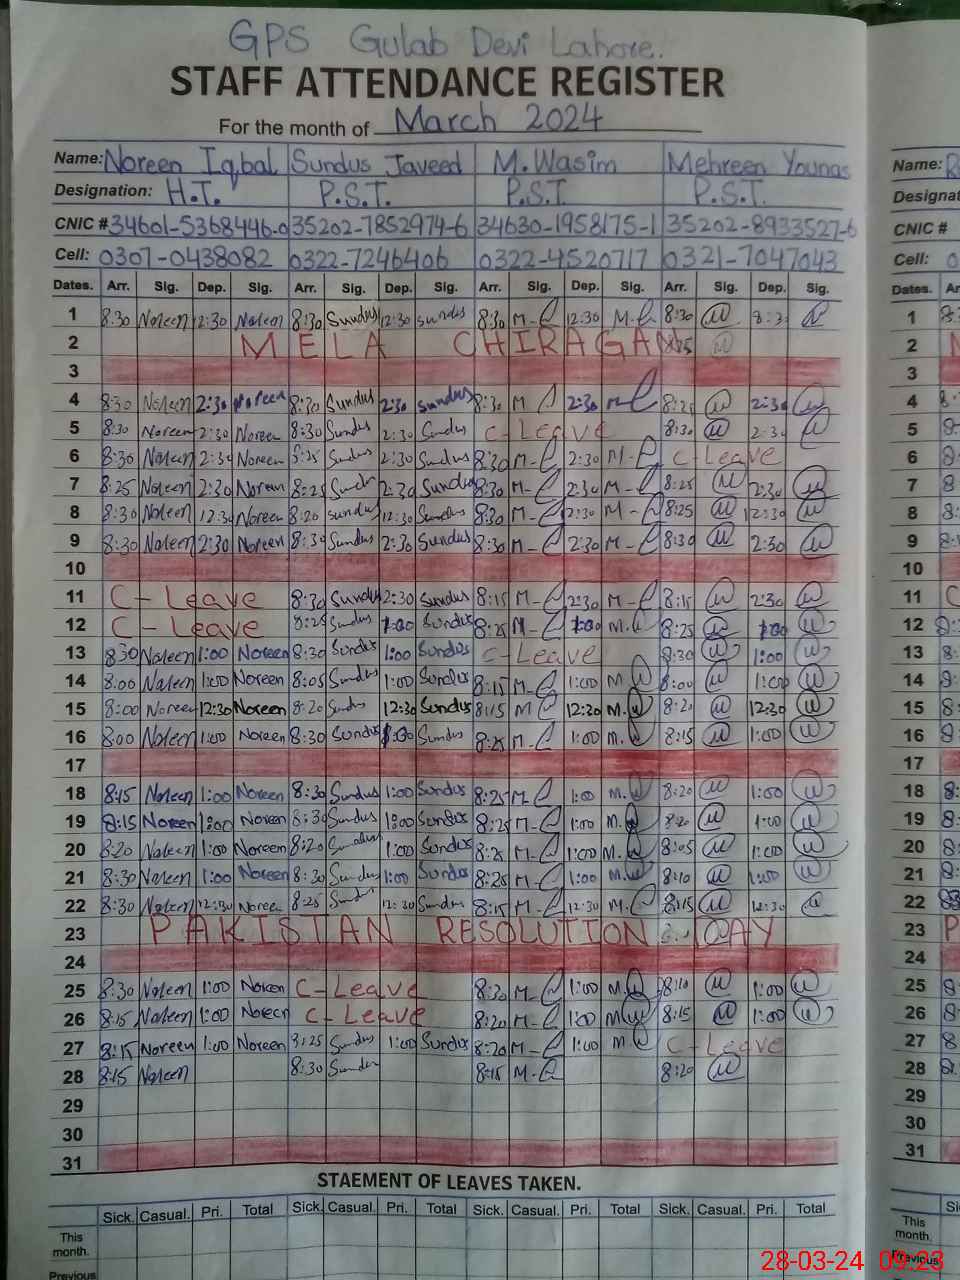 GPS Gulab Devi Lahore.
STAFF ATTENDANCE REGISTER
For the month of March 2024
Name: Noreen Iqbal Sundus Javeed M.Wasim Mehreen Younas Name:
Designation: H.T. P.S.T. P.S.T. P.S.T. Designat
CNIC # 34601-5368446-0 35202-7852974-6 34630-1958175-1 35202-8933527-6 CNIC #
Cell: 0307-0438082 0322-7246406 0322-4520717 0321-7047043 Cell: 0
Dates. Arr. Sig. Dep. Sig. Arr. Sig. Dep. Sig. Arr. Sig. Dep. Sig. Arr. Sig. Dep. Sig. Dates. Ar
1 8:30 Noreen 12:30 Noreen 8:30 Sundus 12:30 Sundus 8:30 M- 12:30 M- 8:30 8:3 1
2 MELA CHIRAGAN 2
3 3
4 8:30 Noreen 2:30 Noreen 8:30 Sundus 2:30 Sundus 8:30 M 2:30 M 8:25 2:30 4
5 8:30 Noreen 2:30 Noreen 8:30 Sundus 2:30 Sundus C-Leave 8:30 2:30 5
6 8:30 Noreen 2:30 Noreen 8:25 Sundus 2:30 Sundus 8:30 M- 2:30 M- C-Leave 6
7 8:25 Noreen 2:30 Noreen 8:25 Sundus 2:30 Sundus 8:30 M- 2:30 M- 8:25 2:30 7
8 8:30 Noreen 12:30 Noreen 8:20 Sundus 12:30 Sundus 8:30 M- 12:30 M- 8:25 12:30 8
9 8:30 Noreen 2:30 Noreen 8:30 Sundus 2:30 Sundus 8:30 M- 2:30 M- 8:30 2:30 9
10 10
11 C-Leave 8:30 Sundus 2:30 Sundus 8:15 M- 2:30 M- 8:15 2:30 11
12 C-Leave 8:25 Sundus 1:00 Sundus 8:25 M- 1:00 M. 8:25 1:00 12
13 8:30 Noreen 1:00 Noreen 8:30 Sundus 1:00 Sundus C-Leave 8:30 1:00 13
14 8:00 Noreen 1:00 Noreen 8:05 Sundus 1:00 Sundus 8:15 M- 1:00 M. 8:00 1:00 14
15 8:00 Noreen 12:30 Noreen 8:20 Sundus 12:30 Sundus 8:15 M 12:30 M. 8:20 12:30 15
16 8:00 Noreen 1:00 Noreen 8:30 Sundus 1:00 Sundus 8:25 M- 1:00 M. 8:15 1:00 16
17 17
18 8:15 Noreen 1:00 Noreen 8:30 Sundus 1:00 Sundus 8:25 M- 1:00 M. 8:20 1:00 18
19 8:15 Noreen 1:00 Noreen 8:30 Sundus 1:00 Sundus 8:25 M- 1:00 M. 8:20 1:00 19
20 8:20 Noreen 1:00 Noreen 8:20 Sundus 1:00 Sundus 8:25 M- 1:00 M. 8:05 1:00 20
21 8:30 Noreen 1:00 Noreen 8:30 Sundus 1:00 Sundus 8:25 M- 1:00 M. 8:10 1:00 21
22 8:30 Noreen 12:30 Noreen 8:25 Sundus 12:30 Sundus 8:15 M- 12:30 M. 8:15 12:30 22
23 PAKISTAN RESOLUTION DAY 23
24 24
25 8:30 Noreen 1:00 Noreen C-Leave 8:30 M- 1:00 M. 8:10 1:00 25
26 8:15 Noreen 1:00 Noreen C-Leave 8:20 M- 1:00 M. 8:15 1:00 26
27 8:15 Noreen 1:00 Noreen 8:25 Sundus 1:00 Sundus 8:20 M- 1:00 M. C-Leave 27
28 8:15 Noreen 8:30 Sundus 8:15 M- 8:20 28
29 29
30 30
31 31
STAEMENT OF LEAVES TAKEN.
Sick. Casual. Pri. Total Sick. Casual. Pri. Total Sick. Casual. Pri. Total Sick. Casual. Pri. Total Si
This month. This month.
Previous Previous
28-03-24 09:23